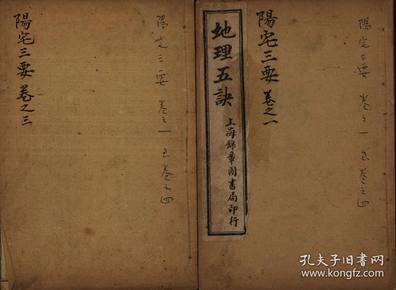 陽宅三要 卷之一
陽宅三要 卷之一
地理五訣
上海錦章圖書局印行
陽宅三要 卷之一 至卷之四
陽宅三要 卷之三
孔夫子旧书网
www.kongfz.com